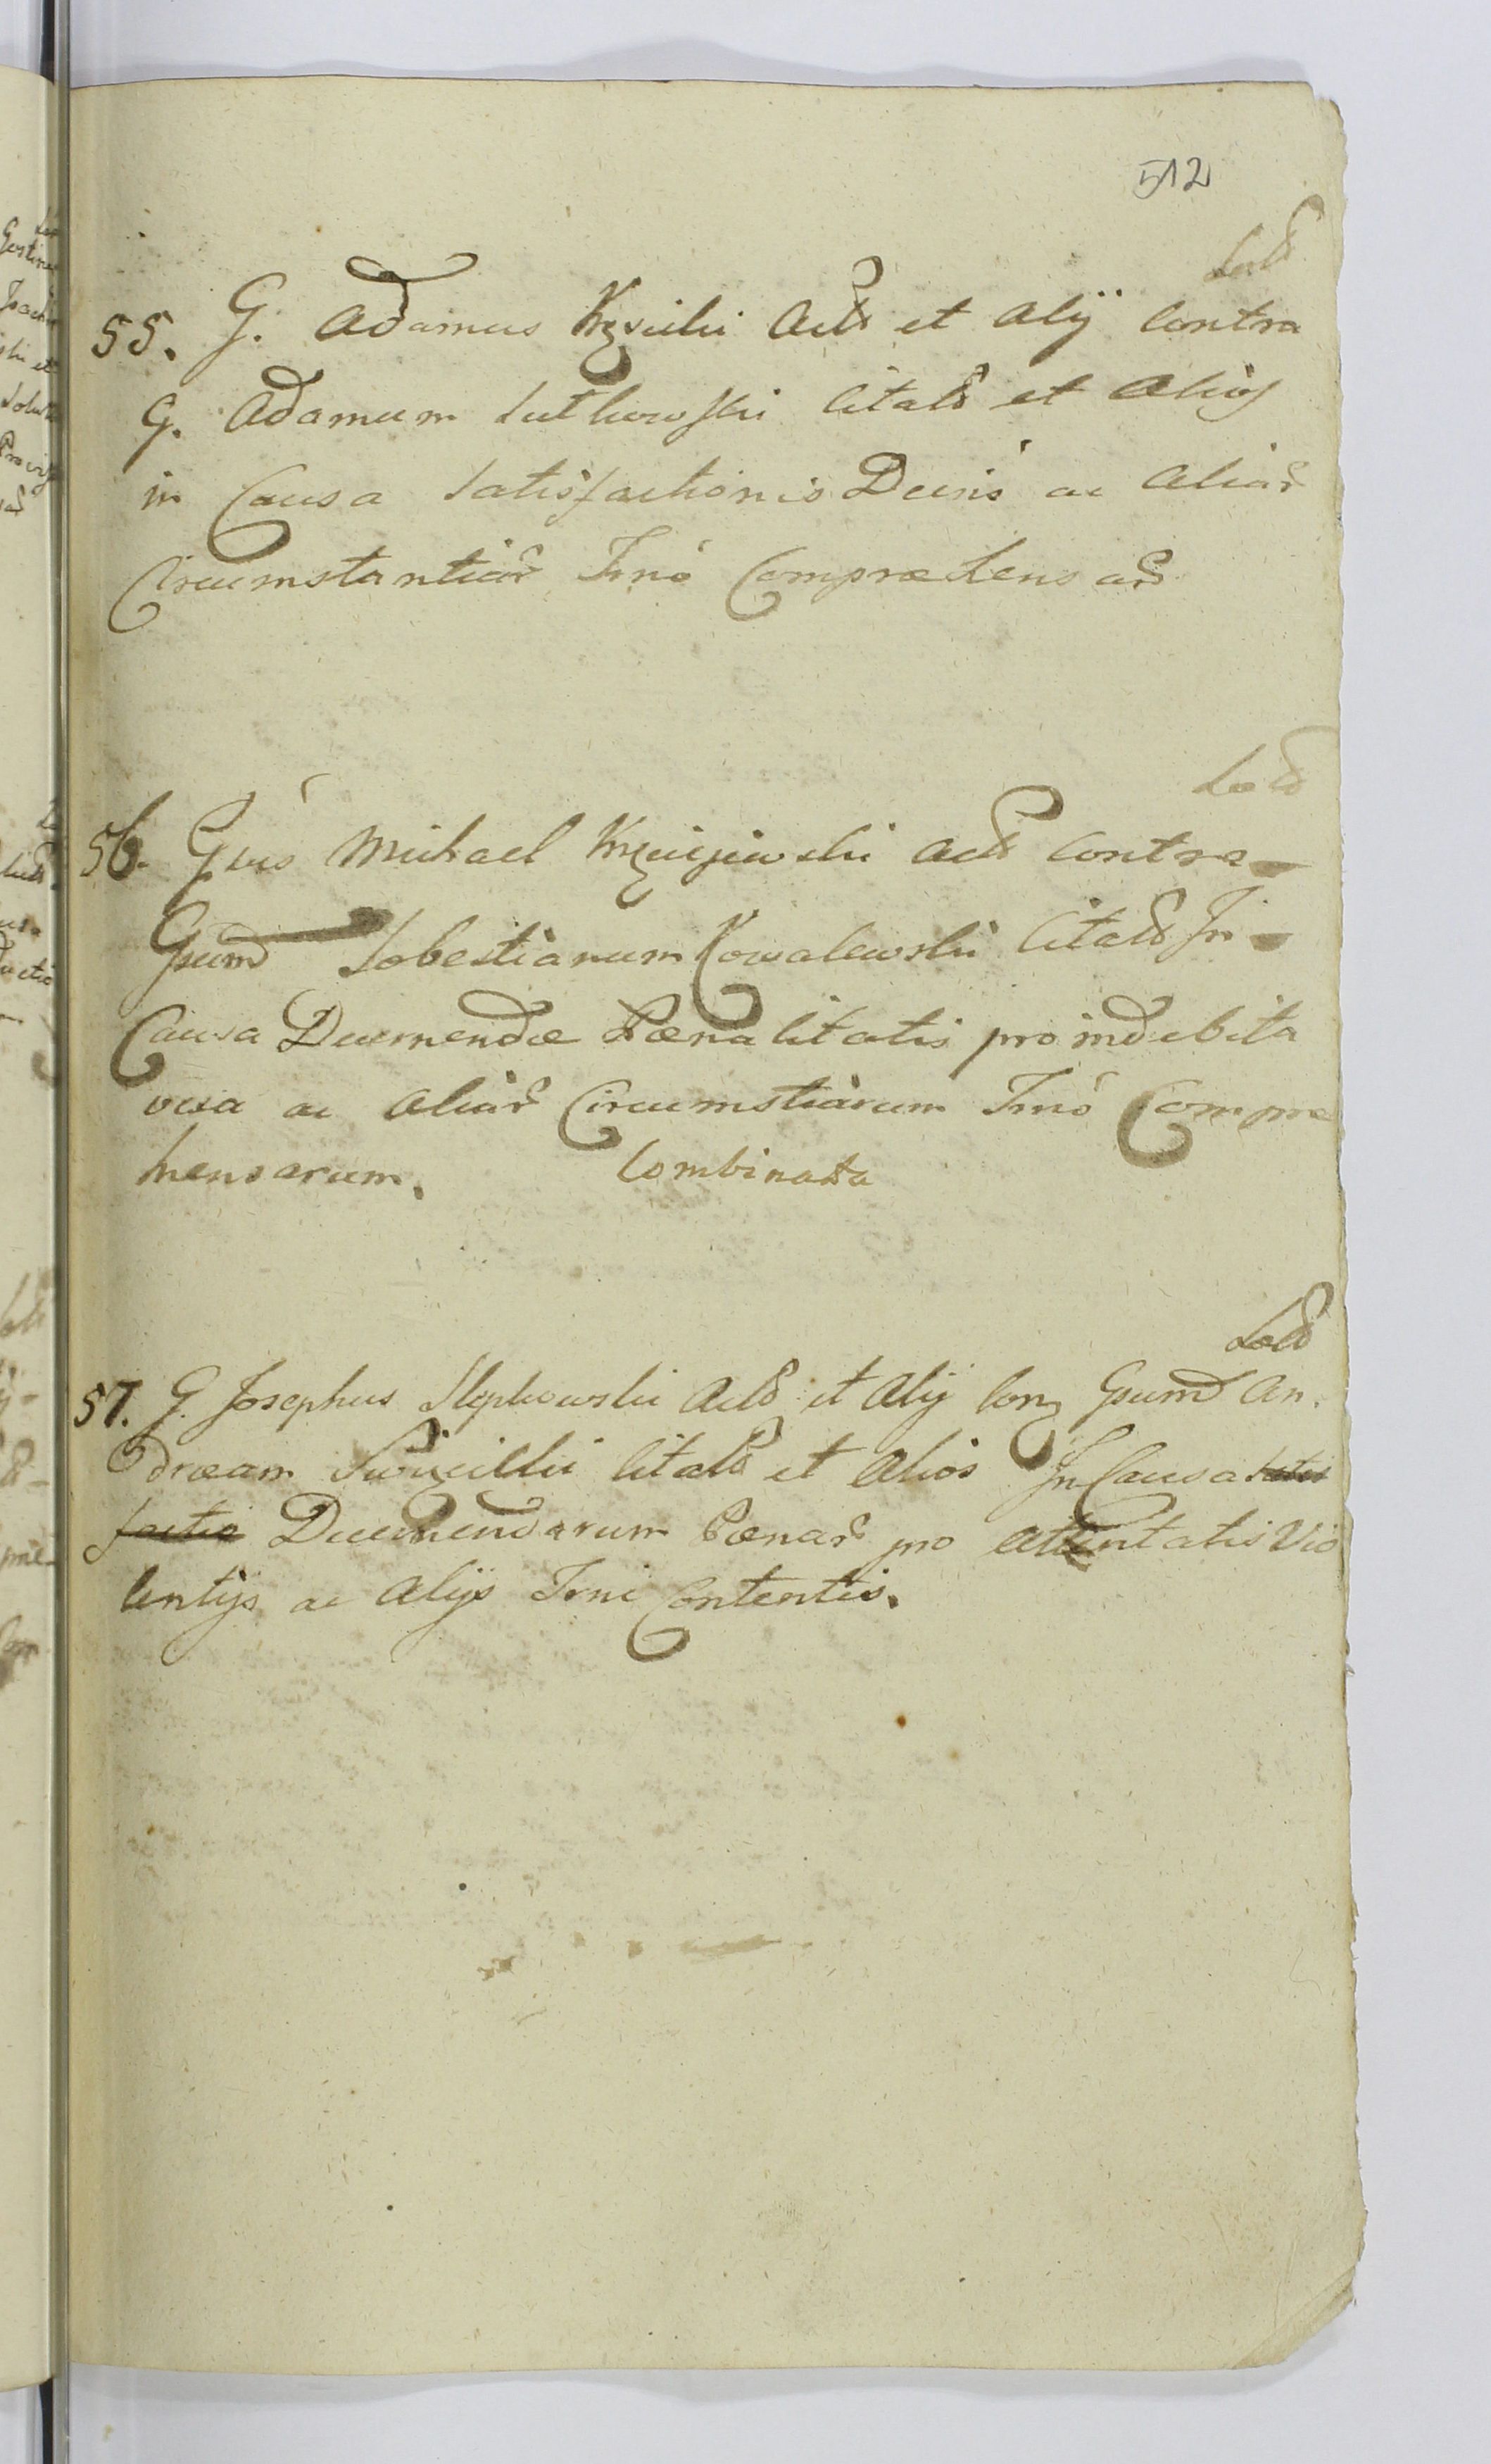 512
55. G. Adamus Krzucki Acts et Alij Contra
G. Adamum Sutkowski Citats et Alios
in Causa satisfactionis Decris ac Aliar
Circumstantiar Trno Compræhensar
56. Gsus Michael Krzeczewski Acts Contra
Gsum Sebestianum Kowalewski Citats In
Causa Decernendæ Pœnalitatis pro indebita
ac Aliar Circumstiarum Trno Compre
hensarum. Combinata
57. G. Josephus Stępkowski Acts et Alij Con Gsum An
dræam Citats et Alios In Causa satis
factio Decernendarum Pœnar pro Attentatis Vio
lentijs ac Alijs Trni Contentis.